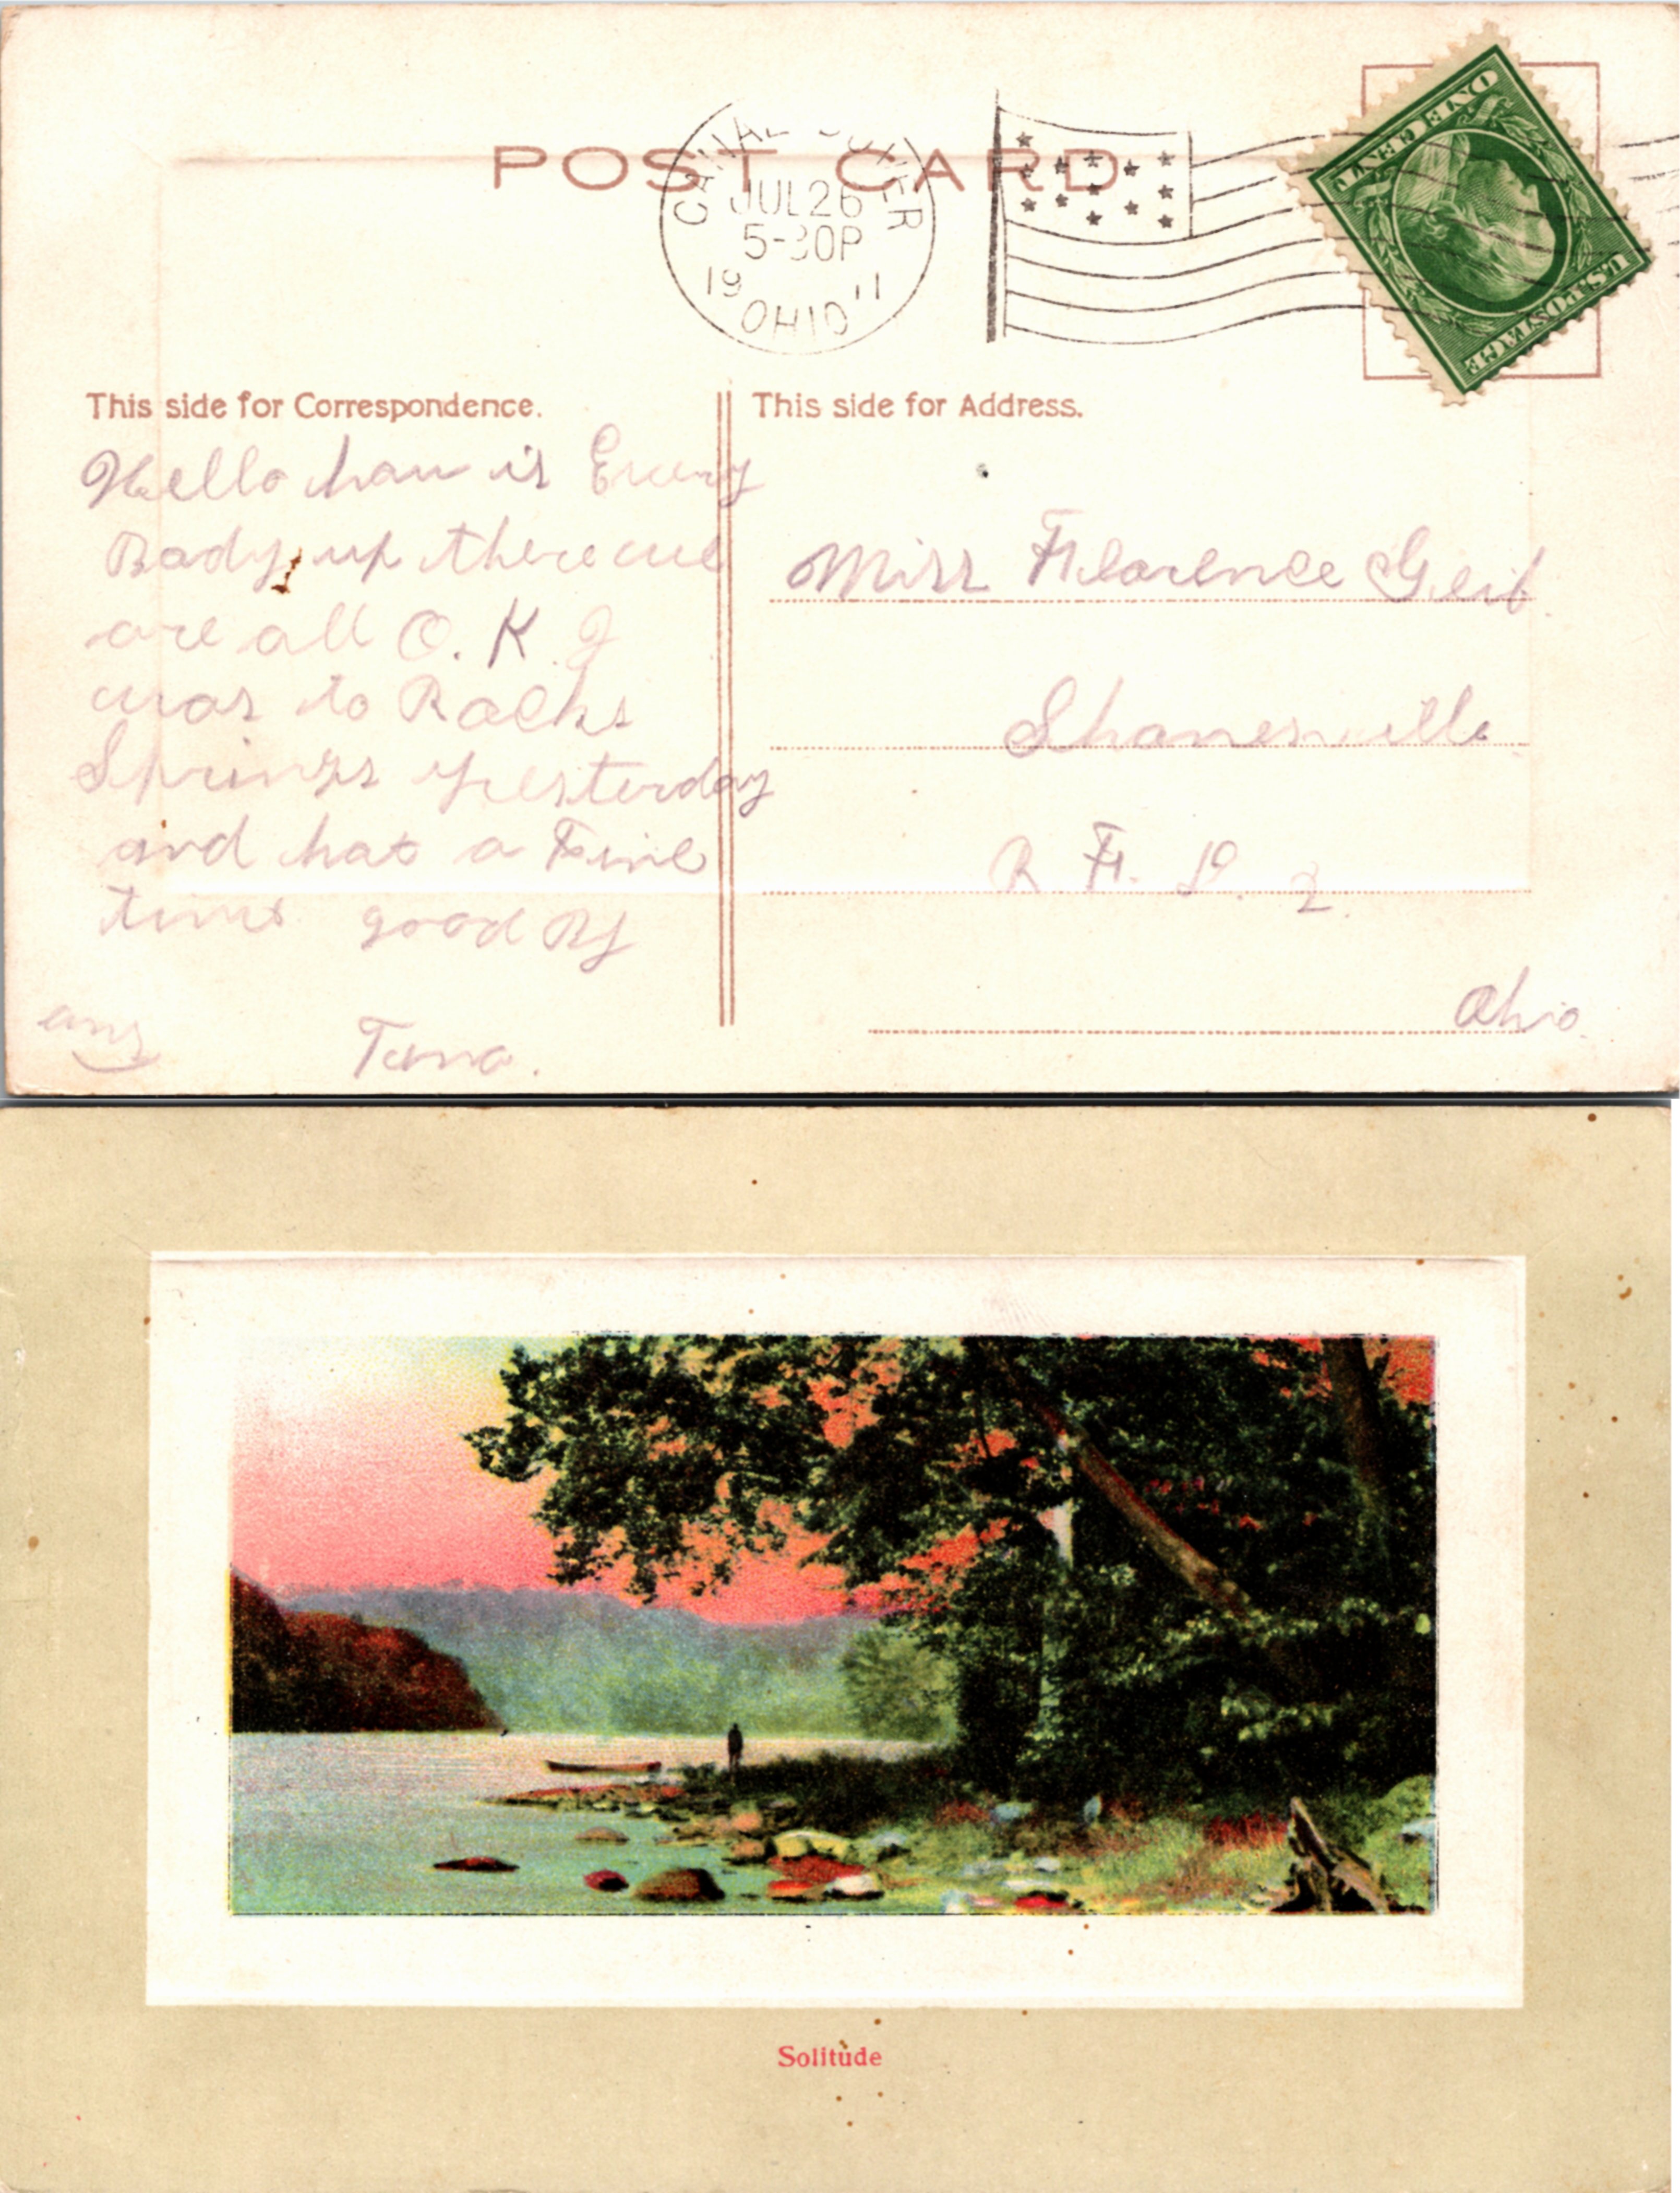 POST CARD
CANAL DOVER
JUL 26
5-30P
19 11
OHIO
ONE CENT ONE
U.S. POSTAGE
This side for Correspondence.
Hello how is Every
Body up there we
are all O.K. I
was to Rocks
Springs yesterday
and had a Fine
time good By
ans
This side for Address.
Miss Florence Geib
Shanesville
R. F. D. 2.
Ohio
Solitude